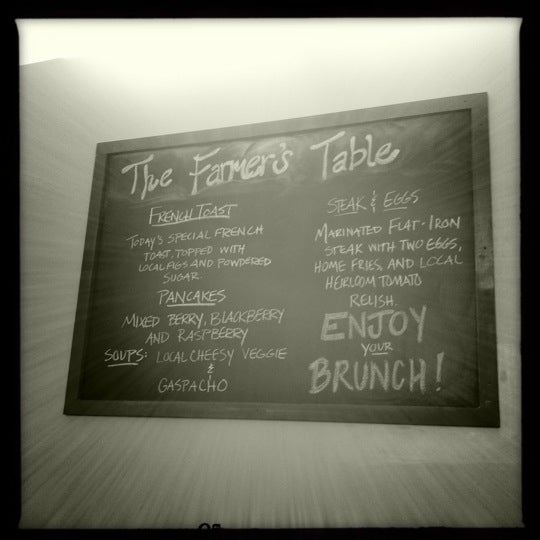 The Farmer's Table
FRENCH TOAST
TODAY'S SPECIAL FRENCH
TOAST, TOPPED WITH
LOCAL FIGS AND POWDERED
SUGAR.
PANCAKES
MIXED BERRY, BLACKBERRY
AND RASTBERRY
SOUPS: LOCAL CHEESY VEGGIE
&
GASPACHO
STEAK & EGGS
MARINATED FLAT-IRON
STEAK WITH TWO EGGS,
HOME FRIES, AND LOCAL
HEIRLOOM TOMATO
RELISH.
ENJOY
YOUR
BRUNCH!